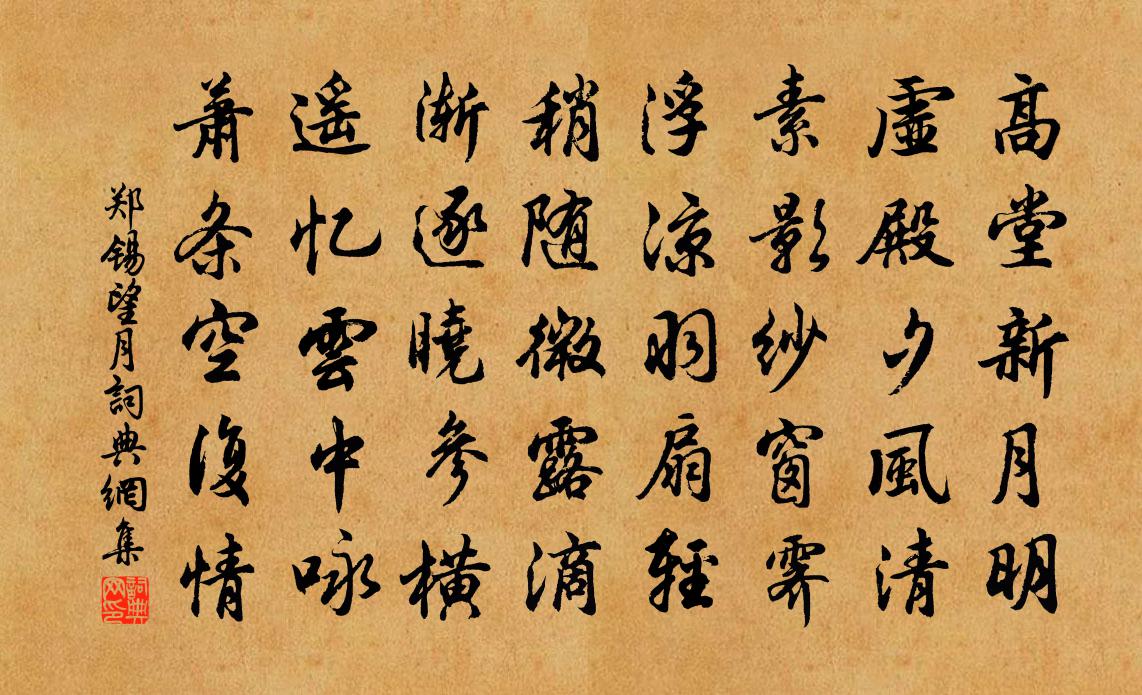 高堂新月明
虛殿夕風清
素影紗窗霽
浮涼羽扇輕
稍随微露滴
漸逐曉參橫
遥忆雲中咏
萧条空復情
郑锡望月詞典網集
詞典网印